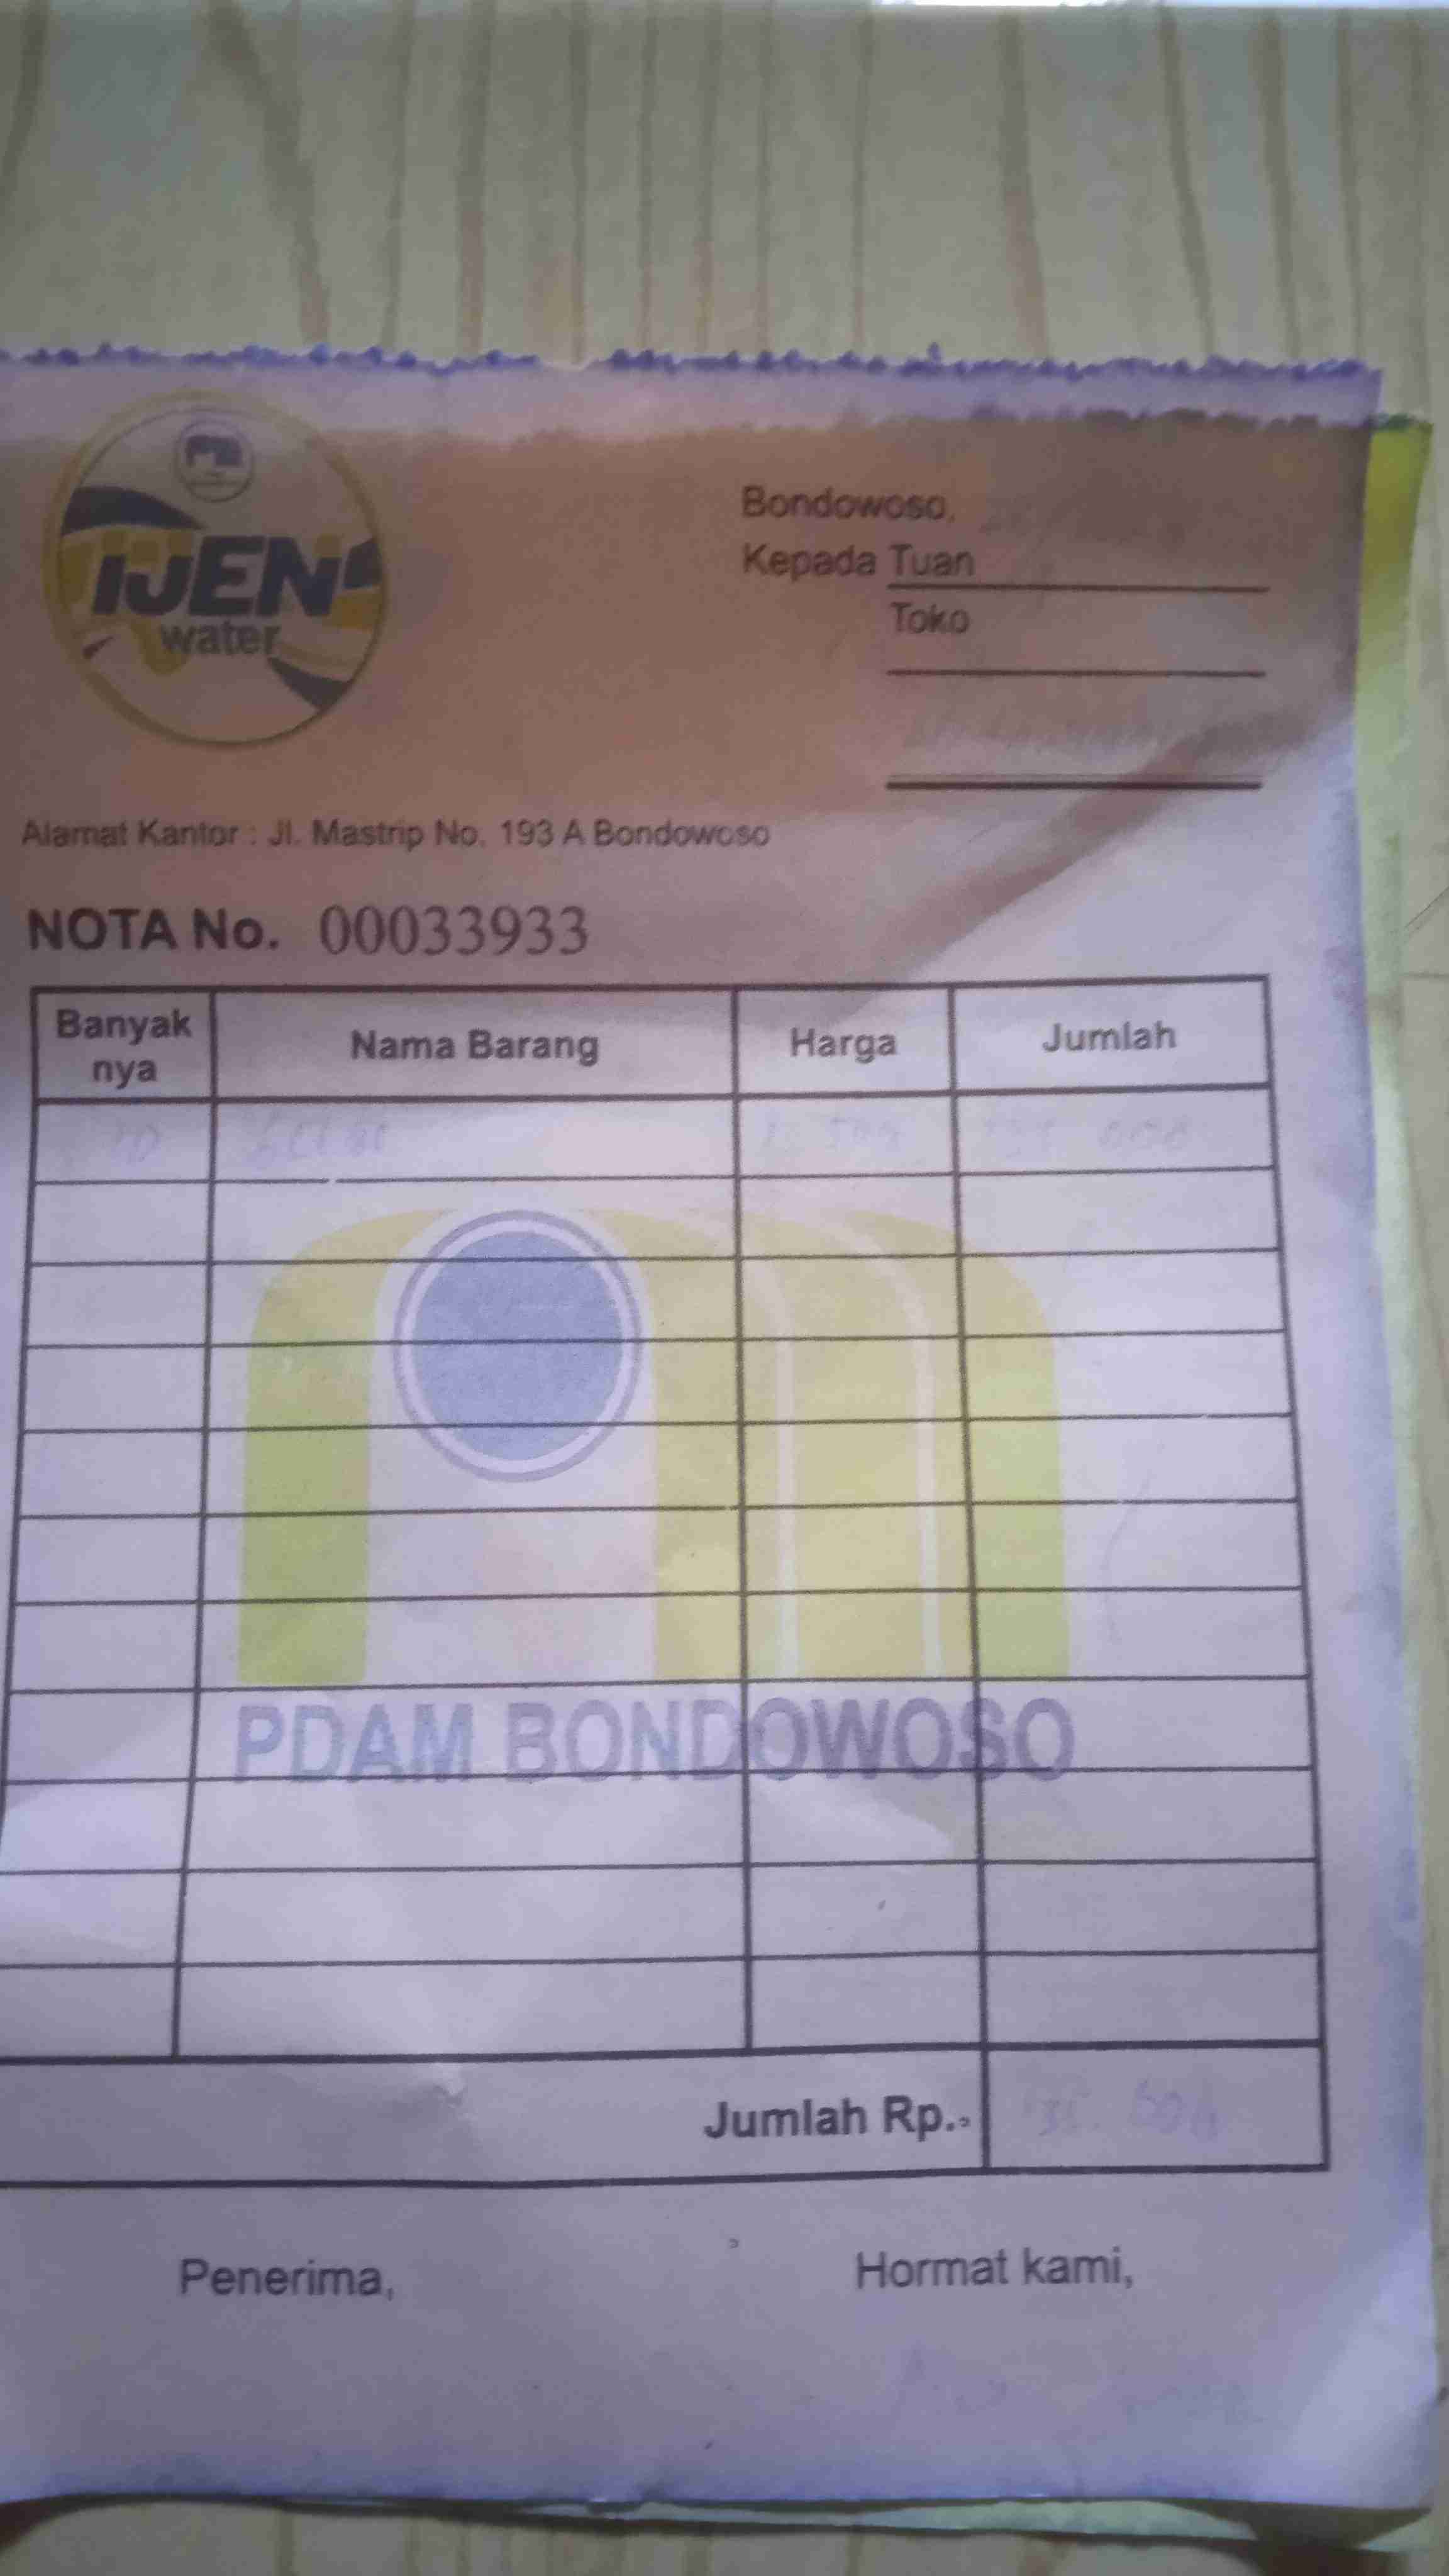 IJEN
water
Bondowoso,
Kepada Tuan
Toko
Alamat Kantor : Jl. Mastrip No. 193 A Bondowoso
NOTA No. 00033933
Banyak nya Nama Barang Harga Jumlah
PDAM BONDOWOSO
Jumlah Rp.
Penerima, Hormat kami,